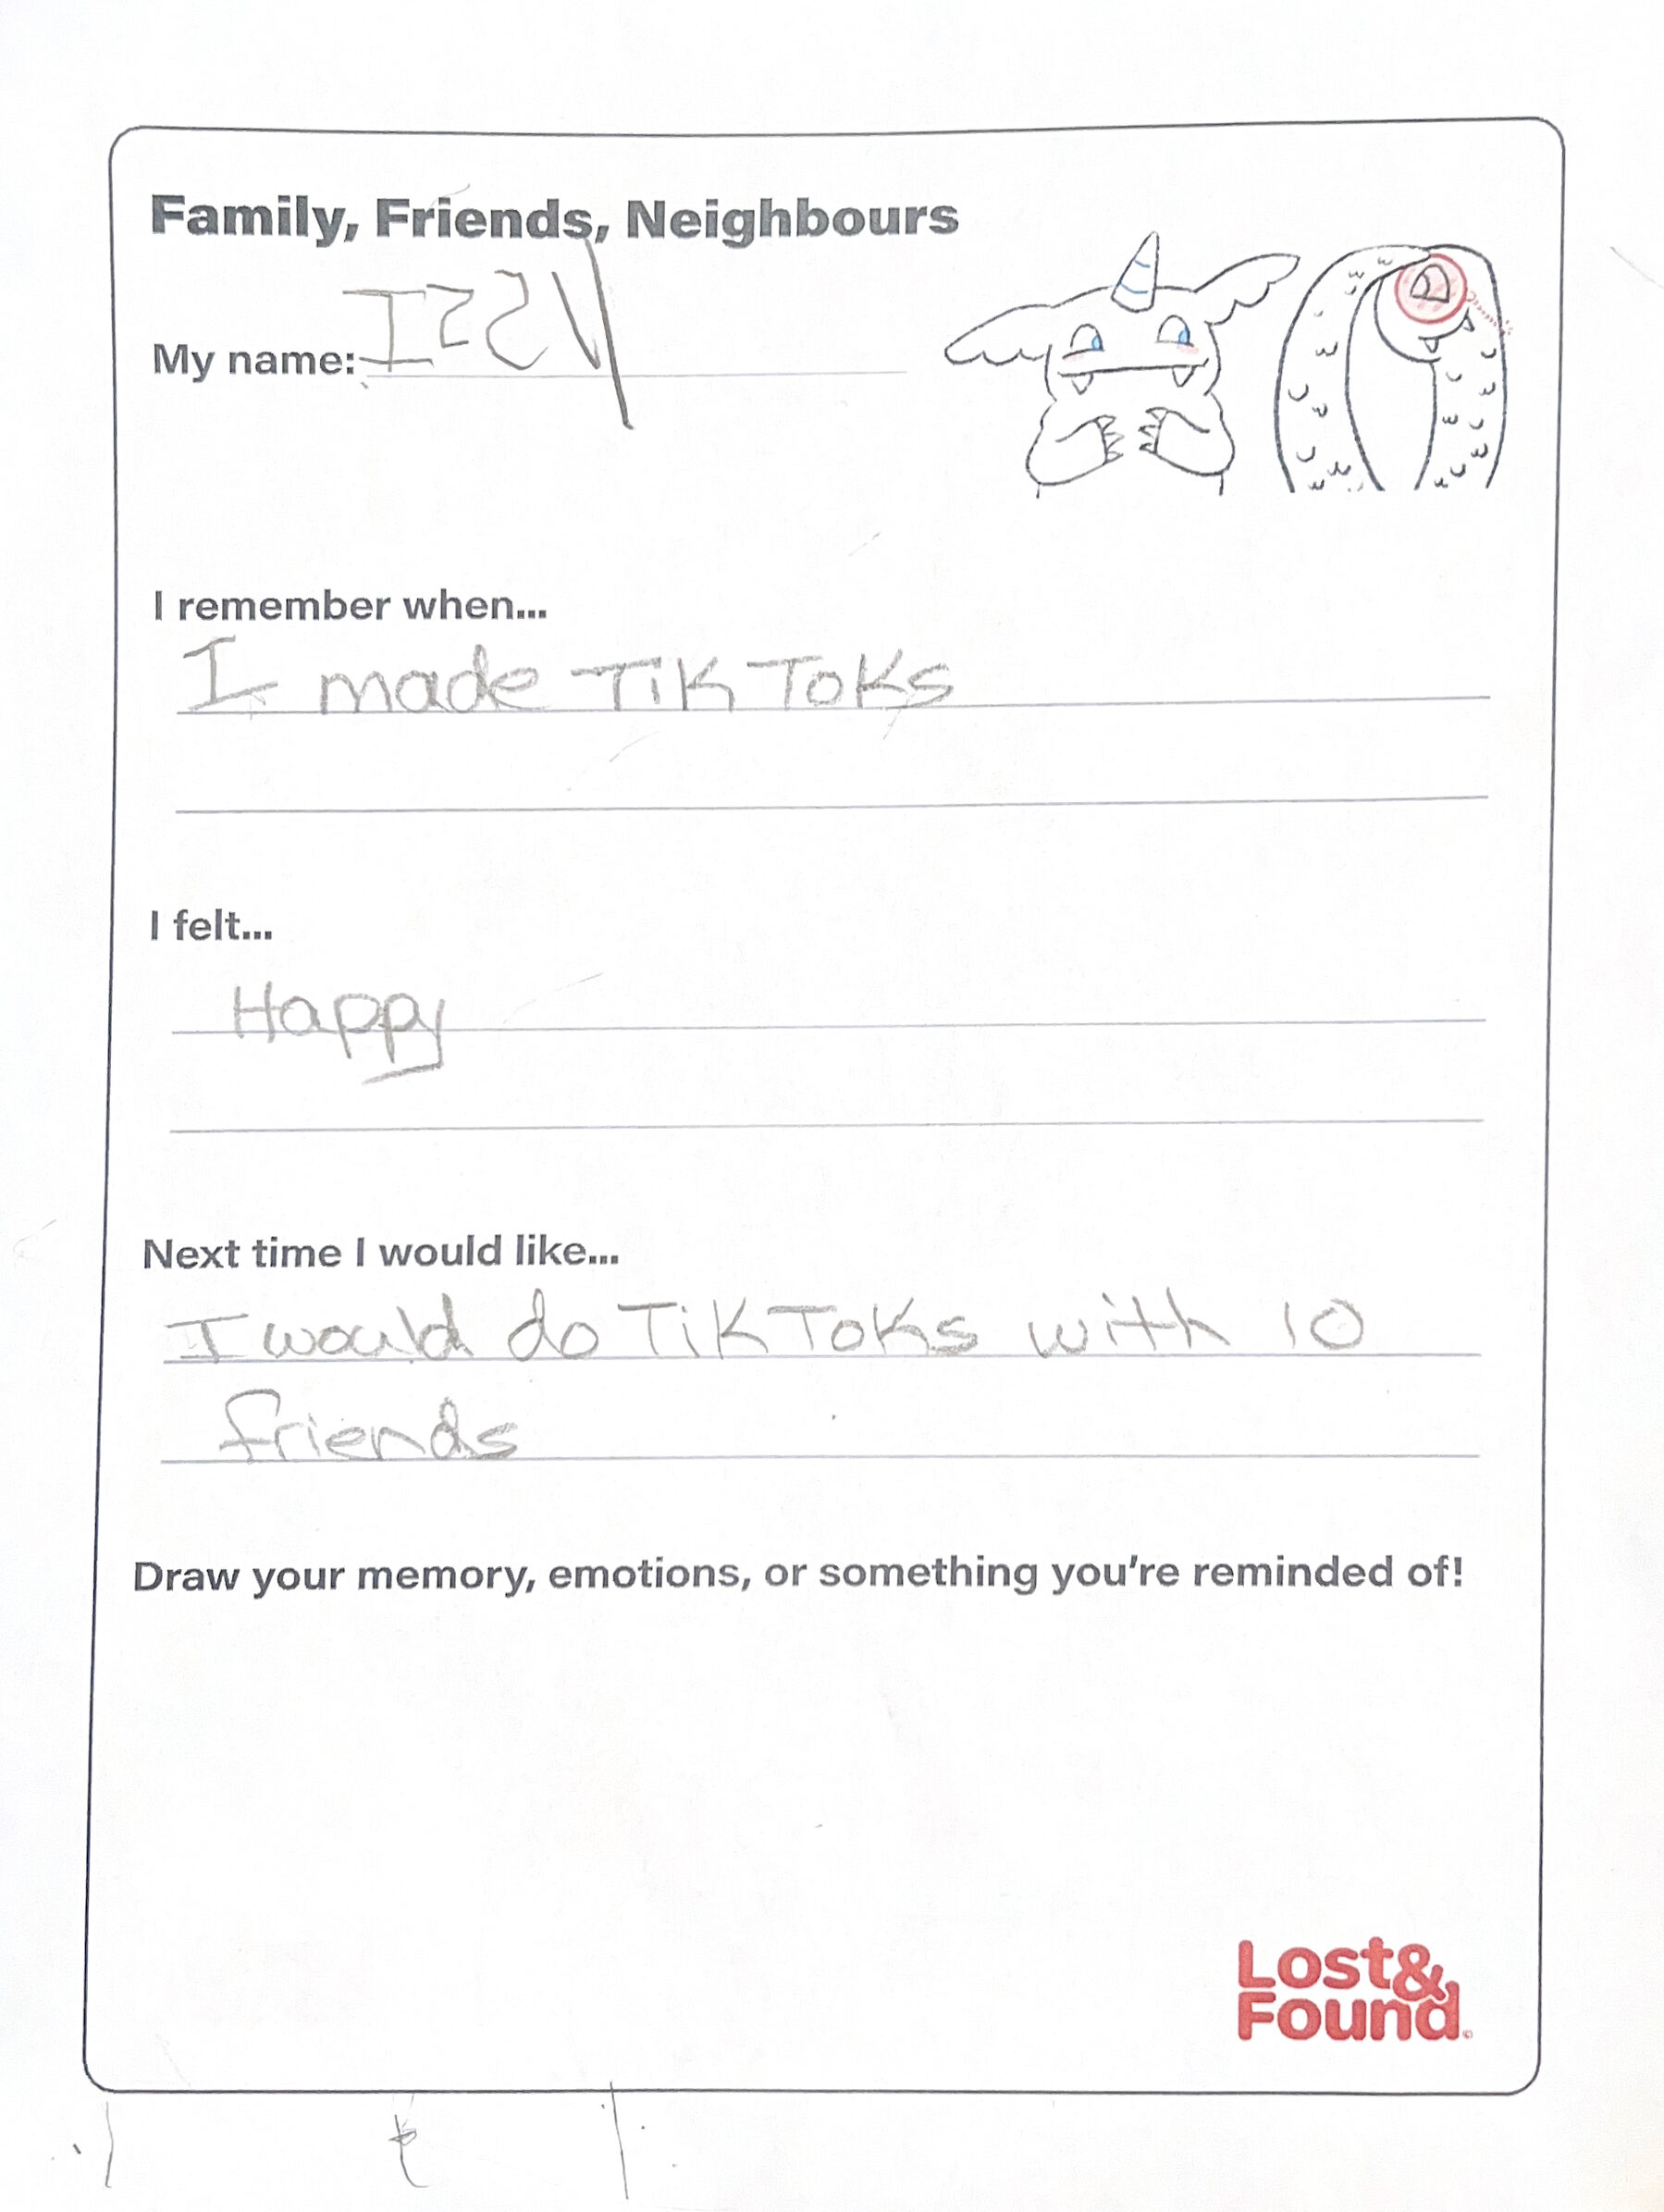 Family, Friends, Neighbours
My name: Izzy
I remember when...
I made TiKToKs
I felt...
Happy
Next time I would like...
I would do TiKToKs with 10
friends
Draw your memory, emotions, or something you're reminded of!
Lost&
Found